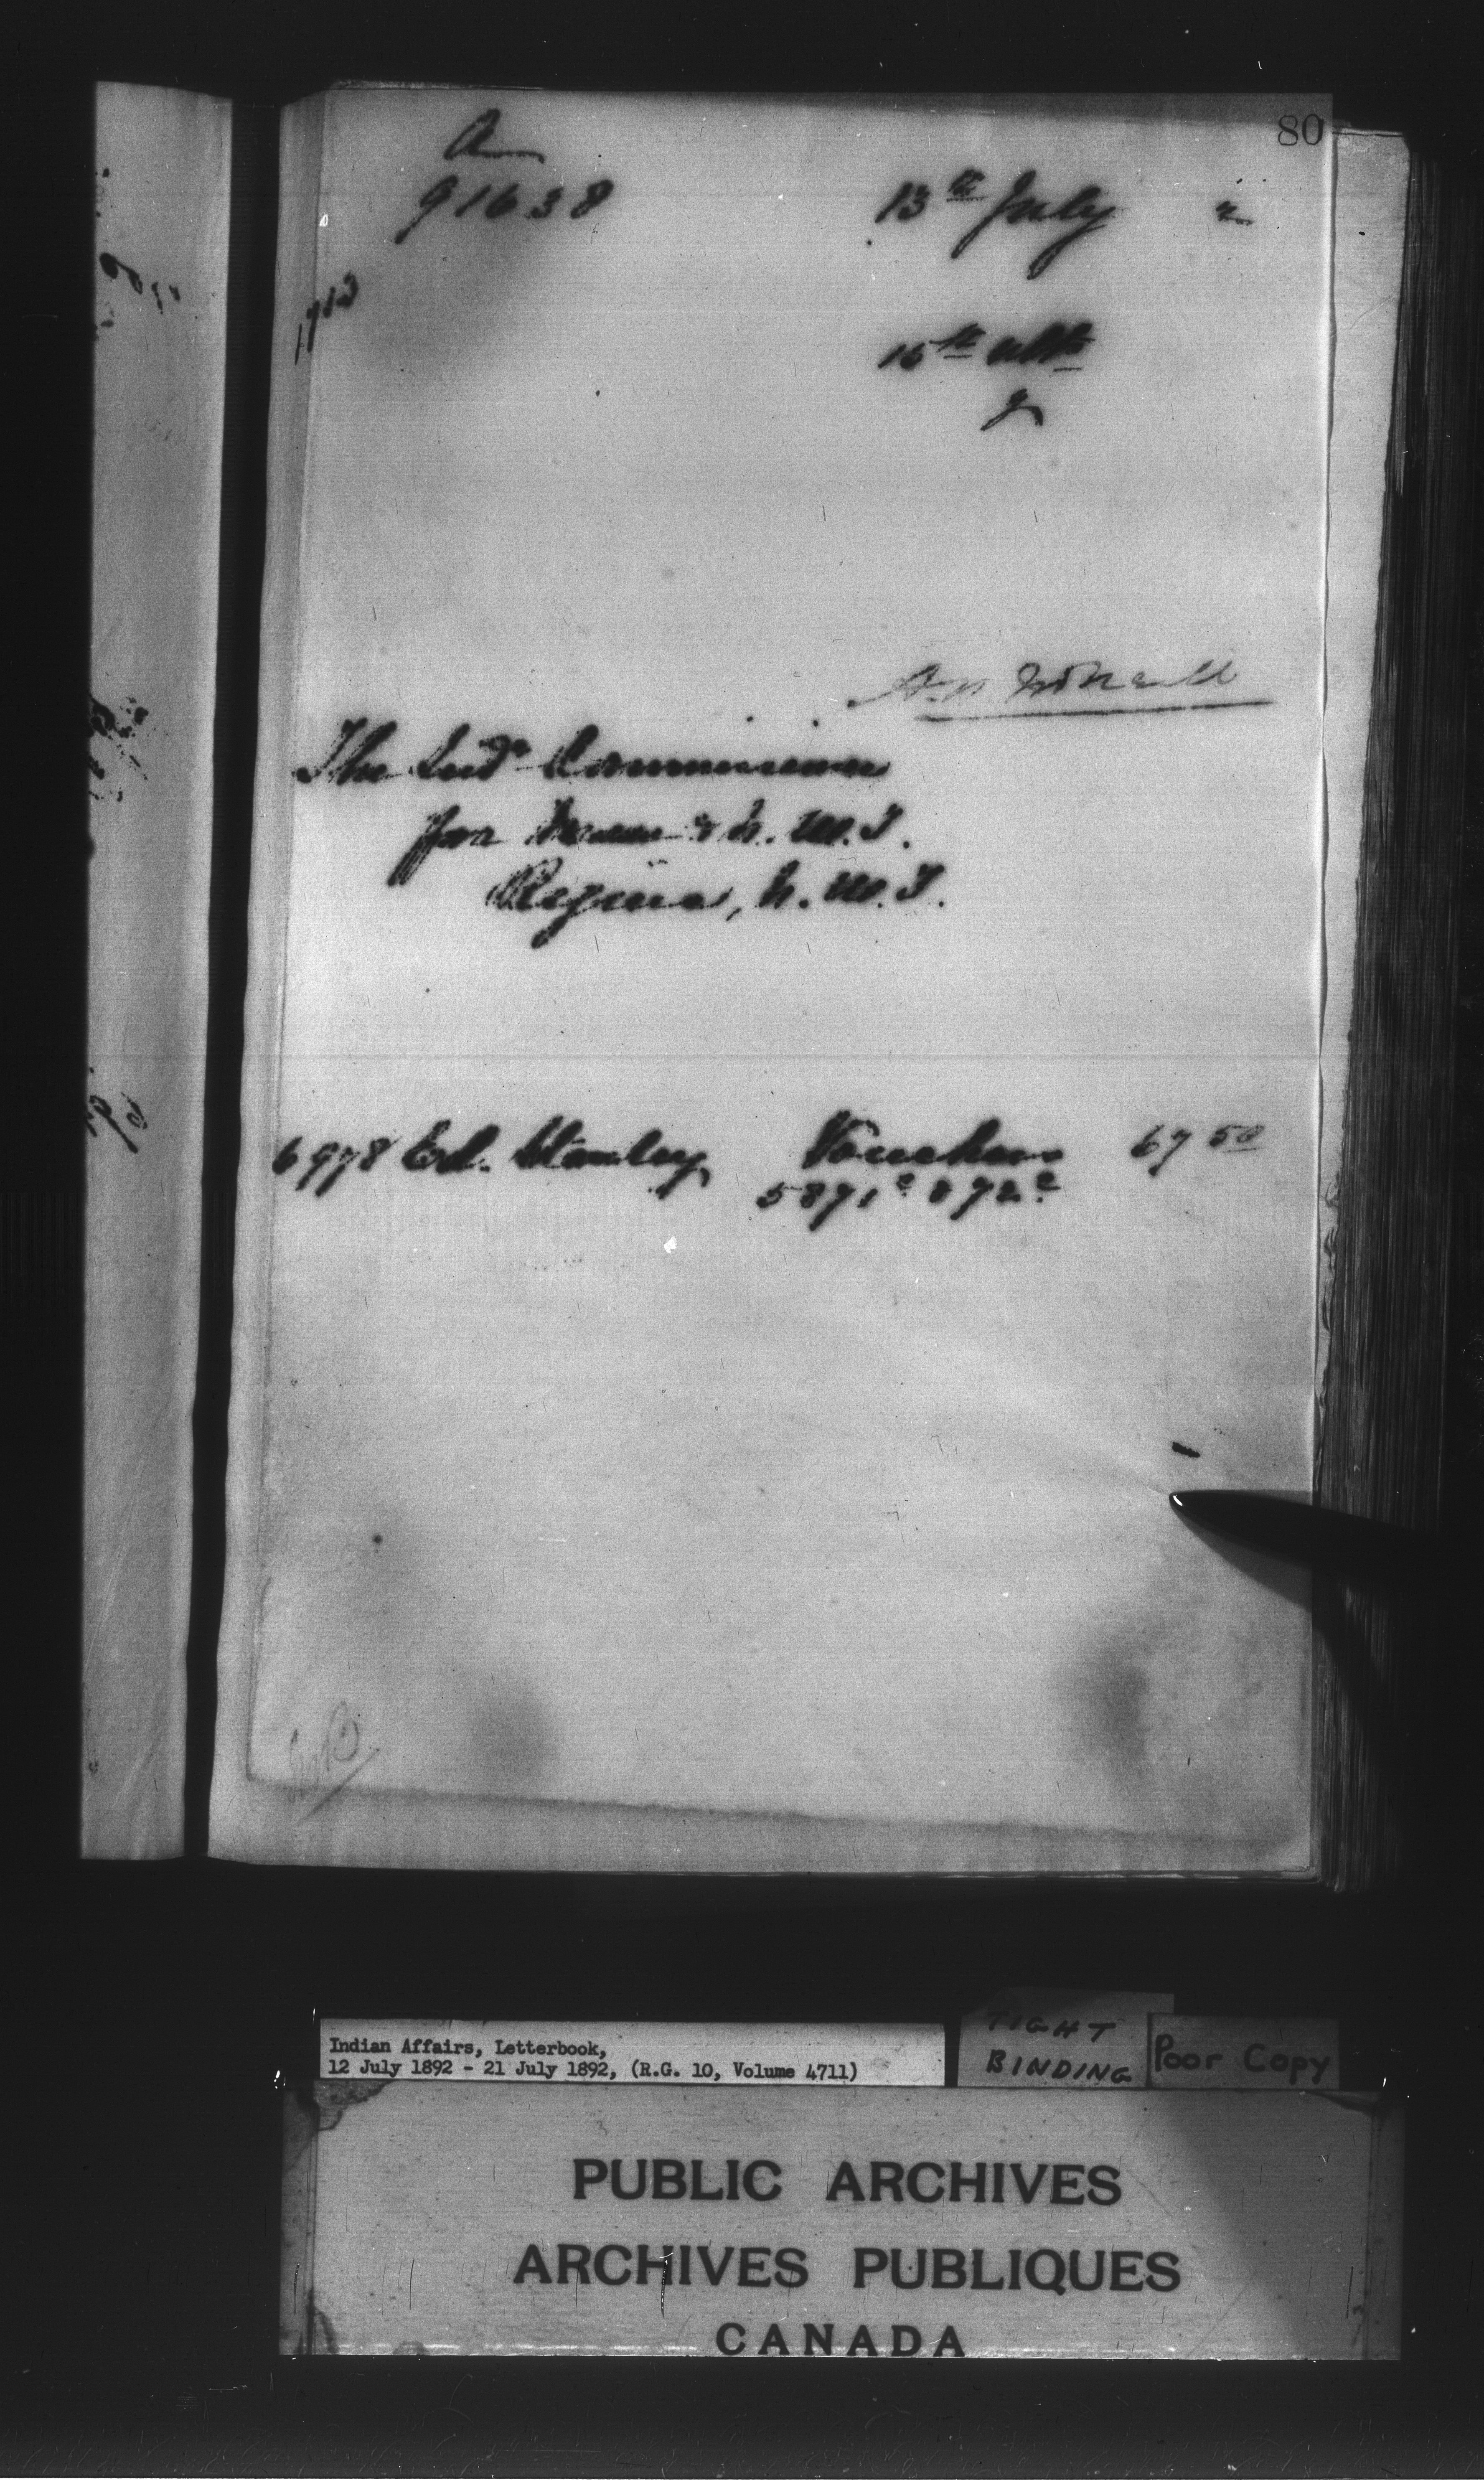 80
A
91638
13th July
1713
15th ulto
The Indn Commissioner
for Man & N.W.T.
Regina, N.W.T.
6978 Ed. Stanley Vouchers 67 50
5871e 872e
Indian Affairs, Letterbook,
12 July 1892 - 21 July 1892, (R.G. 10, Volume 4711)
TIGHT
BINDING
Poor Copy
PUBLIC ARCHIVES
ARCHIVES PUBLIQUES
CANADA